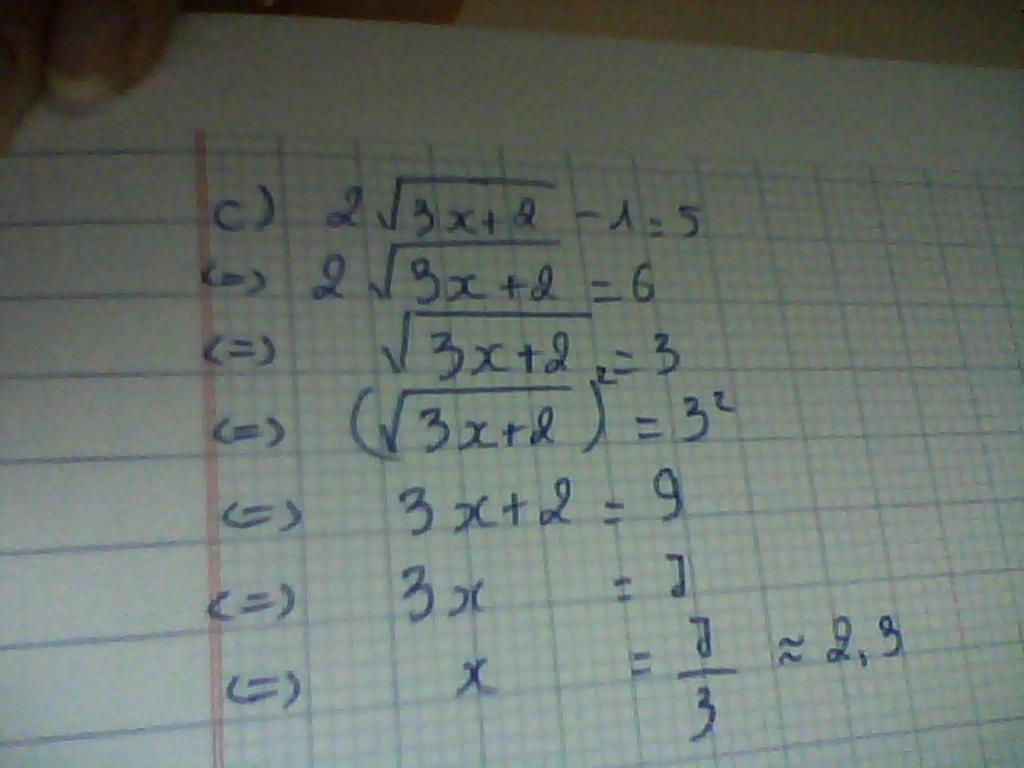 c) 2√(3x+2) - 1 = 5
(=) 2√(3x+2) = 6
(=) √(3x+2) = 3
(=) (√(3x+2))² = 3²
(=) 3x+2 = 9
(=) 3x = 7
(=) x = 7/3 ≈ 2,3